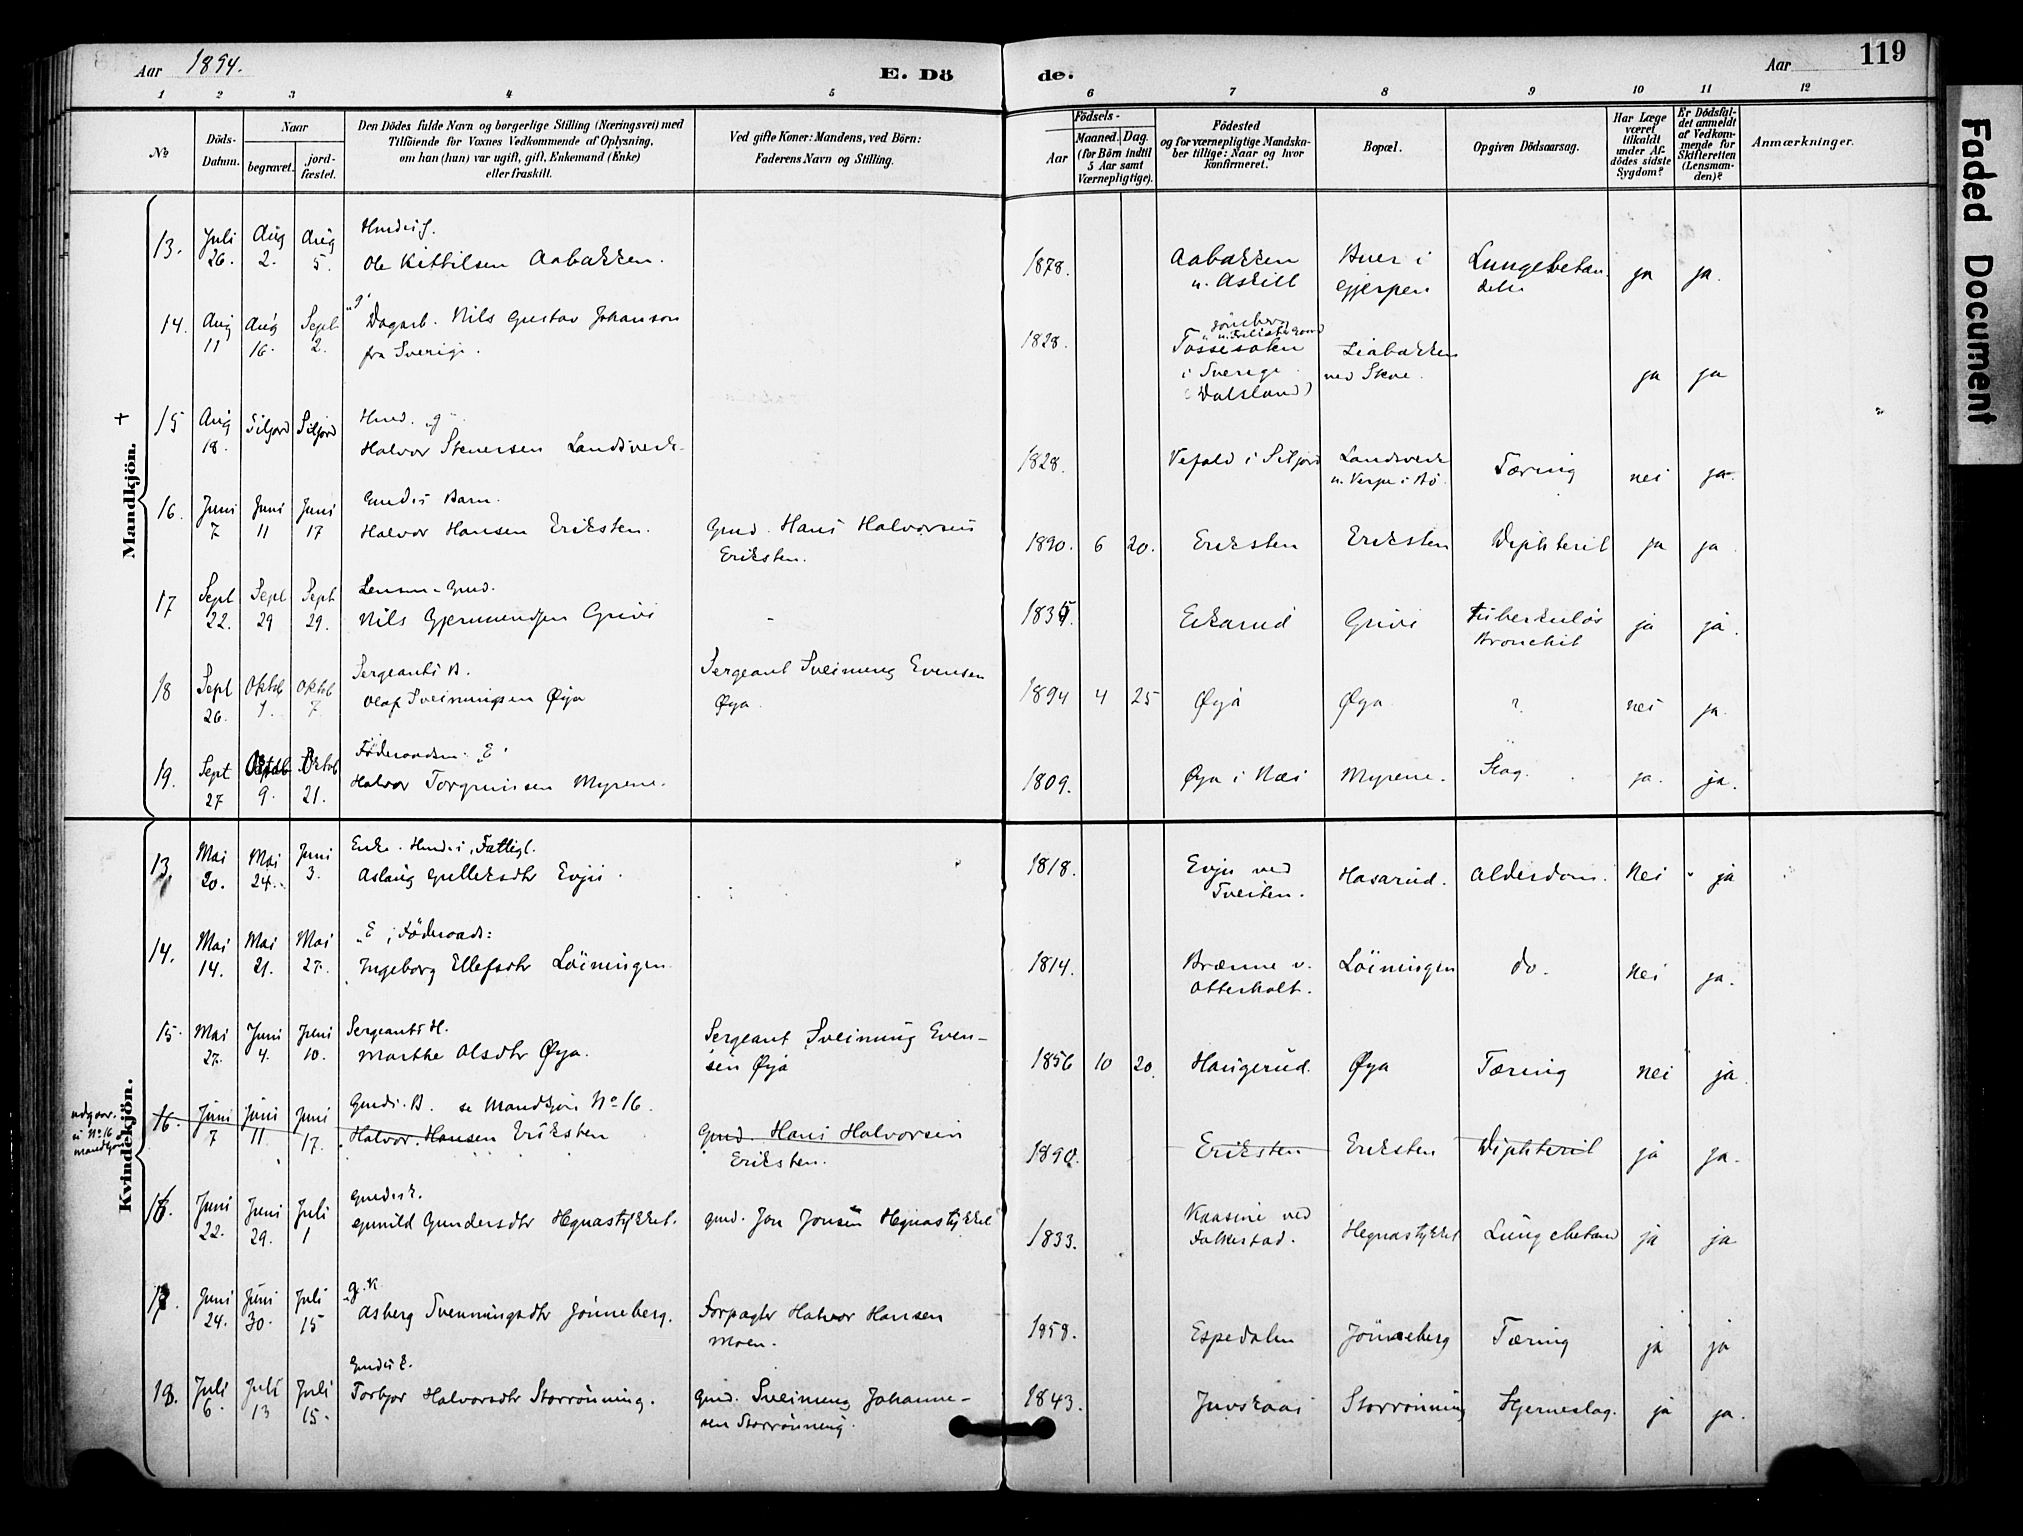 Aar 1894.
E. Döde.
Aar
119
1 2 3 4 5 6 7 8 9 10 11 12
No
Döds-Datum.
Naar
begravet.
jord-fæstet.
Den Dödes fulde Navn og borgerlige Stilling (Næringsvei) med
Tilföiende for Voxnes Vedkommende af Oplysning,
om han (hun) var ugift, gift, Enkemand (Enke)
eller fraskilt.
Ved gifte Koner: Mandens, ved Börn:
Faderens Navn og Stilling.
Födsels-
Aar
Maaned. Dag.
(for Börn indtil
5 Aar samt
Værnepligtige).
Födested
og for værnepligtige Mandska-
ber tillige: Naar og hvor
konfirmeret.
Bopæl.
Opgiven Dödsaarsag.
Har Læge
været
tilkaldt
under Af-
dödes sidste
Sygdom?
Er Dödsfal-
det anmeldt
af Vedkom-
mende for
Skifteretten
(Lensman-
den)?
Anmærkninger.
Faded Document
Mandkjön.
13. Juli 26. Aug 2. Aug 5. Ole Kittilsen Aabakken. 1878. Aabakken u. Askill Buer i Gjerpen Lungebetændelse ja ja.
14. Aug 11 Aug 16. Sept. 2. "g" Dagarb. Nils Gustav Johanson fra Sverige. 1828. Tössesoken i Sverige (Dalsland) Liabakken ved Skoe. ja ja
+ 15 Aug 18. Siljord Siljord Hmd. "g" Halvor Stenersen Landsverk. 1828. Vefald i Siljord Landsverk u. Verpe i Bö. Tæring nei ja.
16. Juni 7 Juni 11 Juni 17 Gmds Barn. Halvor Hansen Eriksten. Gmd. Hans Halvorsen Eriksten. 1890. 6 20. Eriksten Eriksten Diphterit ja ja.
17 Sept 22. Sept 29 Sept 29. Gmd. Nils Gjermundsen Grivi - 1835. Eikarud Grivi Tuberkulös Bronchit ja ja.
18 Sept 26. Oktb 1. Oktb 7. Sergeants B. Olaf Sveinungsen Øya Sergeant Sveinung Evensen Øya. 1894 4 25 Øya Øya. ? nei ja.
19. Sept 27 Oktob 9. Oktob 21. Föderaadsm. "E" Halvor Torgrimsen Myrene. 1809. Øya i Næs Myrene. Slag. ja. ja.
Kvindekjön.
13 Mai 20. Mai 24. Juni 3. Enke. Hmds, Fattigl. Aslaug Gulleksdtr Evju. 1818. Evju ved Tveiten. Hasarud. Alderdom. Nei ja
14. Mai 14. Mai 21. Mai 27. "E", Föderaads: Ingeborg Ellefsdtr Löiningen 1814. Brænne v. Otterholt. Löiningen do. Nei ja.
15. Mai 27. Juni 4. Juni 10. Sergeants H. Marthe Olsdtr Øya. Sergeant Sveinung Evensen Øya 1856 10 20. Haugerud. Øya Tæring nei ja.
udgaar. s. No 16 mandkjön
16. Juni 7 Juni 11 Juni 17. Gmds. B. se Mandkjön No 16. Halvor Hansen Eriksten Gmd. Hans Halvorsen Eriksten. 1890. Eriksten Eriksten Diphterit ja ja.
16. Juni 22. Juni 29. Juli 1 Gunild Gundersdtr Hegnastykket. gmd. Jon Jonsen Hegnastykket 1833. Kaasine ved Folkestad. Hegnastykket Lungebetænd ja ja
17. Juni 24. Juni 30. Juli 15 g. K Asberg Svenningsdtr Jönneberg. Forpagter Halvor Hansen Moen. 1859. Espedalen Jönneberg Tæring ja ja
18. Juli 6. Juli 13 Juli 15. Torbjor Halvorsdtr Storrönning. Gmd. Sveinung Johannesen Storrönning. 1843. Juvskaas Storrönning Hjerneslag. ja ja.